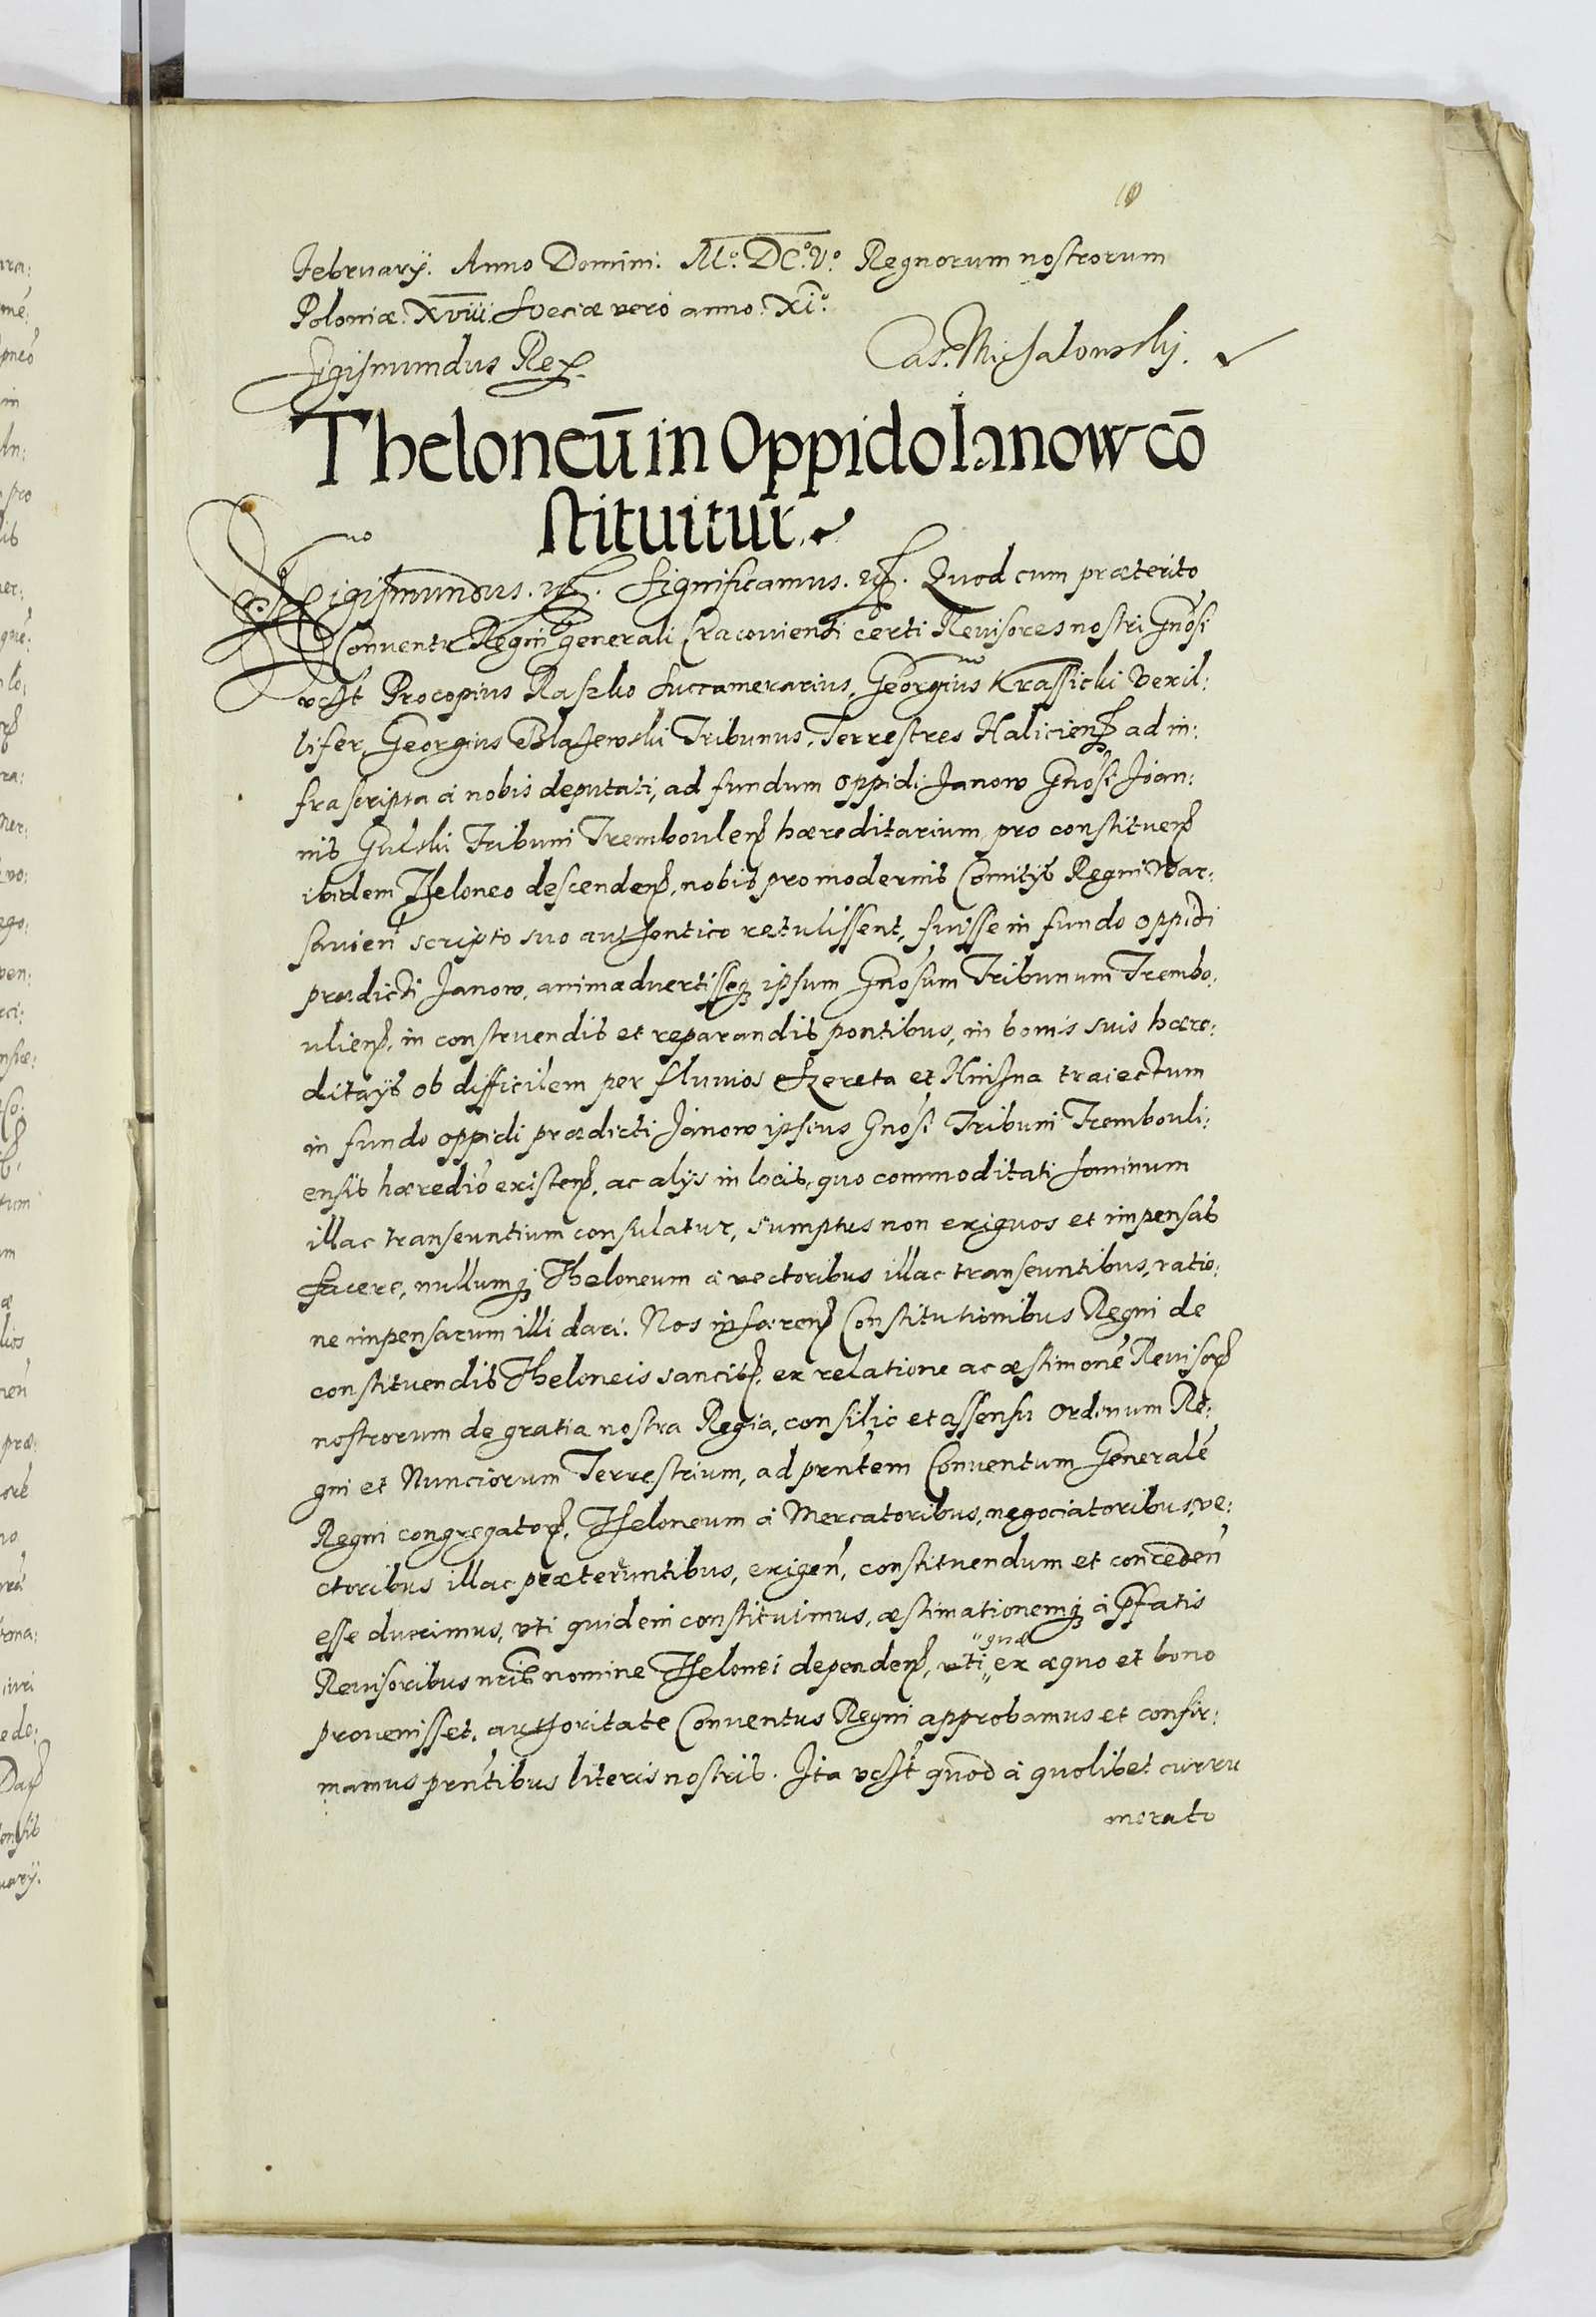 10
February. Anno Domini. Mo. DCo. Vo. Regnorum nostrorum
Poloniæ. XVIII. Sveciæ vero anno. XIo.
Sigismundus Rex.
Cas. Michalowsky.
Theloneū in Oppido Ianow cō
stituitur.
Sigismundus. Significamus. Quod cum præterito
Conventu Regni generali Cracoviensi certi Revisores nostri Gnōsi
Procopius Raszko Succamerarius, Georgius Krassicki Vexil:
lifer, Georgius Blazewski Tribunus, Terrestres Halicien ad in:
frascripta à nobis deputati, ad fundum oppidi Janow Gnōsi Joan:
nis Gulski Tribuni Tremboulen hæreditarium, pro constituen
ibidem Theloneo descenden, nobis pro modernis Comitys Regni War:
savien scripto suo authentico retulissent, fuisse in fundo oppidi
prædicti Janow, animadvertisseq ipsum Gnōsum Tribunum Trembo:
ulien, in construendis et reparandis pontibus, in bonis suis hære:
ditays ob difficilem per fluvios Szereta et Hnisna traiectum
in fundo oppidi prædicti Janow ipsius Gnōsi Tribuni Trembouli:
ensis hærediō existen, ac alys in locis, quo commoditati hominum
illac transeuntium consulatur, sumptus non exiguos et impensas
facere, nullumq Theloneum à vectoribus illac transeuntibus, ratio:
ne impensarum illi dari. Nos inhæren Constitutionibus Regni de
constituendis Theloneis sancitis, ex relatione ac æstimonē Revisor
nostrorum de gratia nostra Regia, consilio et assensu Ordinum Re:
gni et Nunciorum Terrestrium, ad prntem Conventum Generalē
Regni congregator, Theloneum à Mercatoribus, negociatoribus, ve:
ctoribus illac prætereuntibus, exigen, constituendum et conceden
esse duximus, uti quidem constituimus, æstimationemq à pfatis
Revisoribus nris nomine Thelonei dependen, uti quæ ex æquo et bono
provenisset, authoritate Conventus Regni approbamus et confir:
mamus prntibus literis nostris. Ita quod à quolibet curru
merato